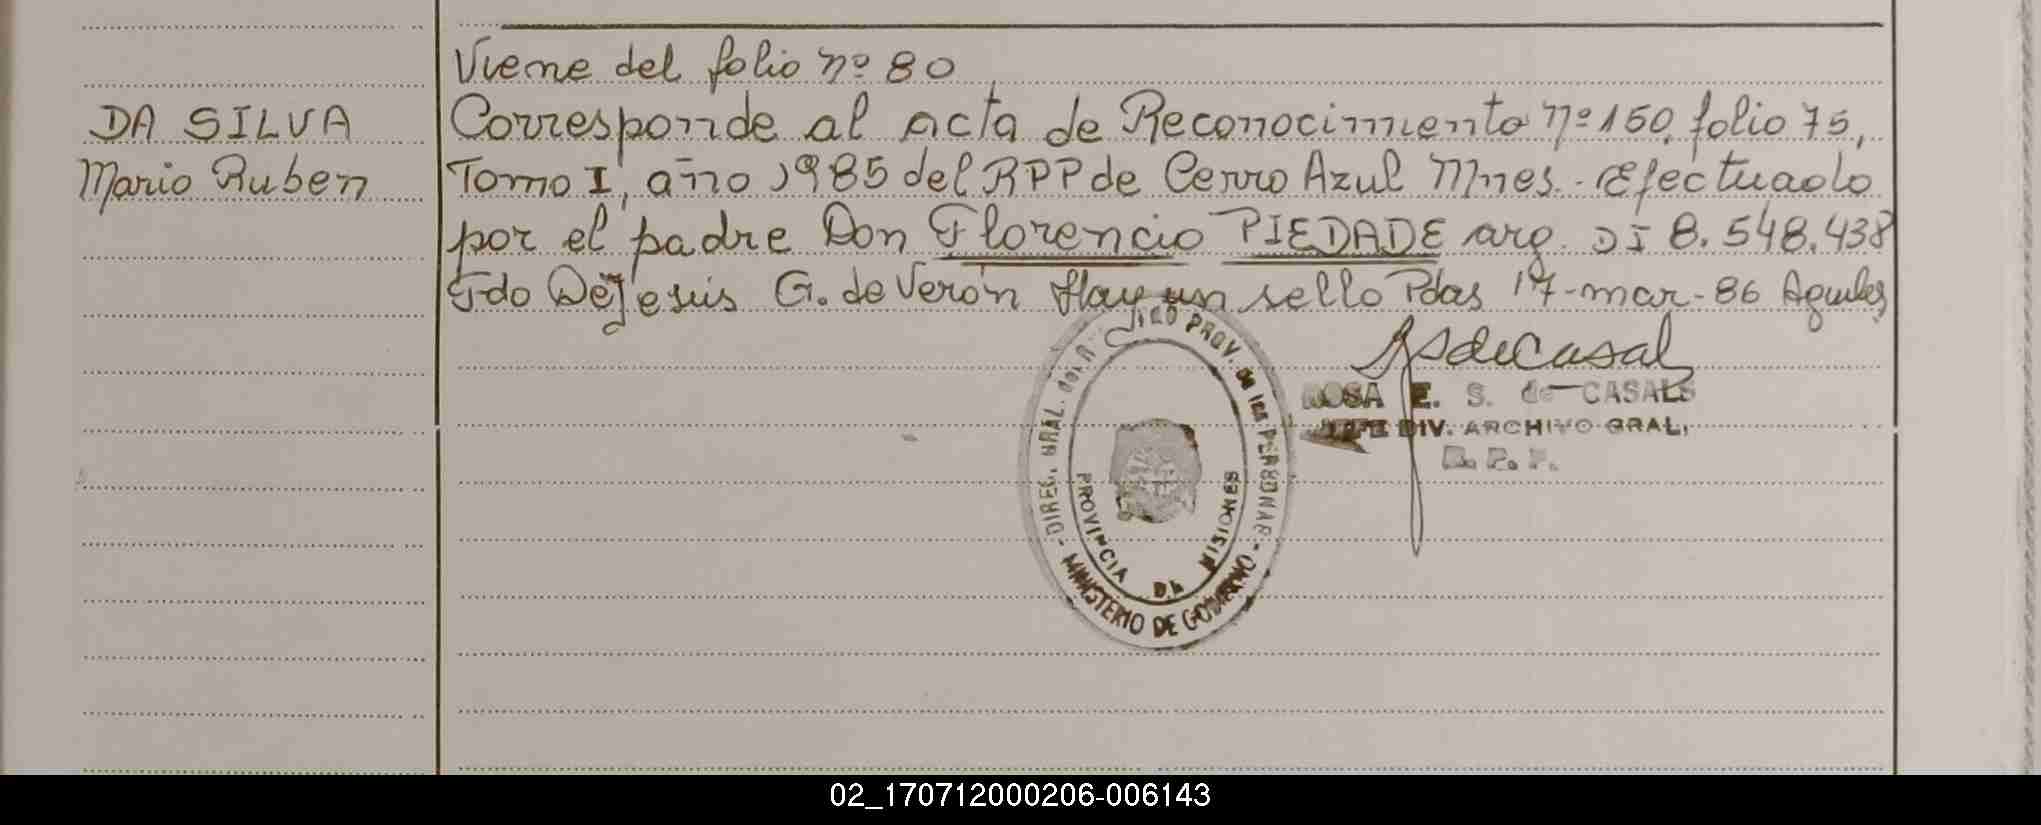 Viene del folio nº 80
DA SILVA
Mario Ruben
Corresponde al acta de Reconocimiento nº 150, folio 75,
Tomo I, año 1985 del RPP de Cerro Azul Mnes. - Efectuado
por el padre Don Florencio PIEDADE arg. DI 8.548.438
Fdo DeJesus G. de Verón Hay un sello Pdas 17-mar-86
RSdeCasal
ROSA E. S. de CASALS
JEFE DIV. ARCHIVO GRAL.
R. P. P.
DIREC. GRAL. DEL PROV. DE LAS PERSONAS
PROVINCIA DE MISIONES
- MINISTERIO DE GOBIERNO -
02_170712000206-006143